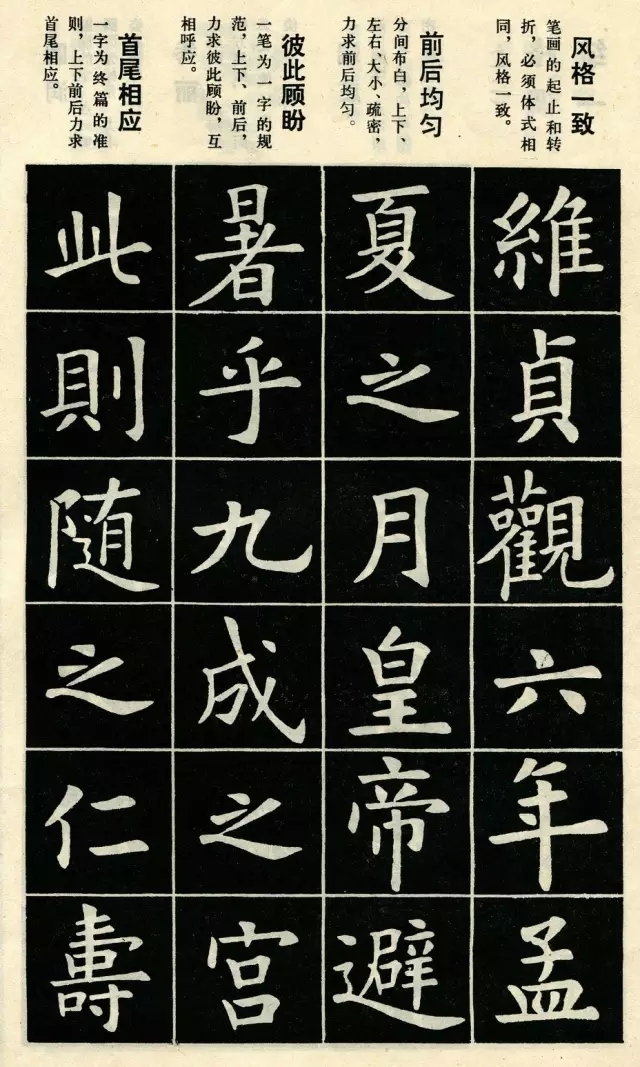 风格一致
笔画的起止和转
折，必须体式相
同，风格一致。
前后均匀
分间布白，上下、
左右、大小、疏密，
力求前后均匀。
彼此顾盼
一笔为一字的规
范，上下、前后，
力求彼此顾盼，互
相呼应。
首尾相应
一字为终篇的准
则，上下前后力求
首尾相应。
維貞觀六年孟
夏之月皇帝避
暑乎九成之宫
此則随之仁壽